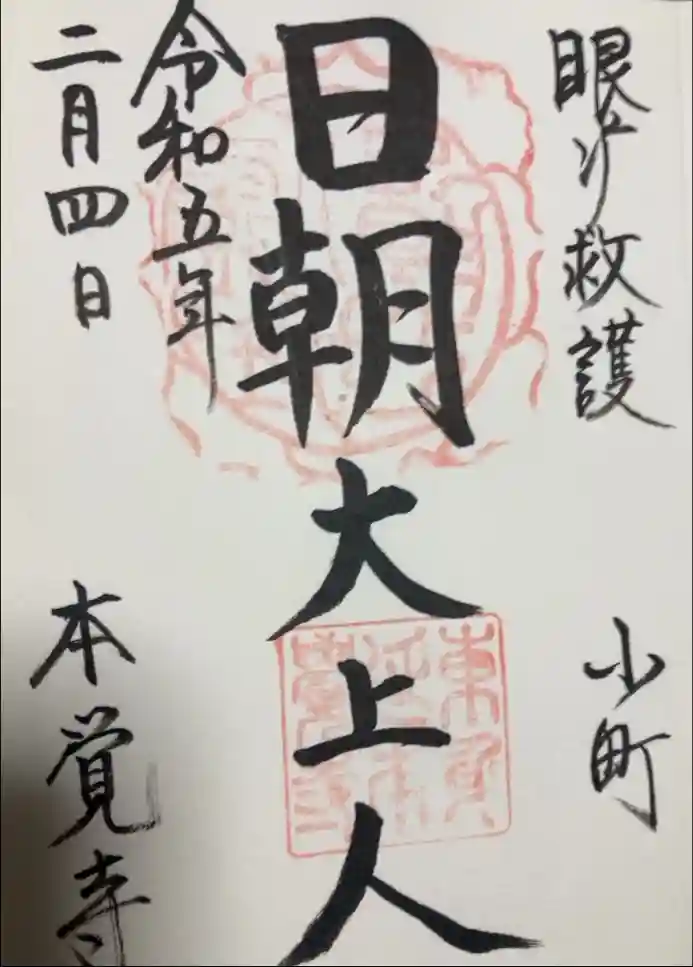 眼病救護
小町
日朝大上人
令和五年
二月四日
本覚寺